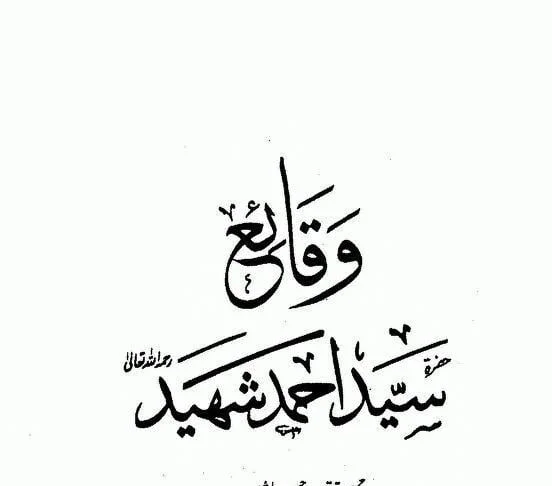 وقائع
حضرۃ سیّد احمد شہید رحمہ اللہ تعالیٰ